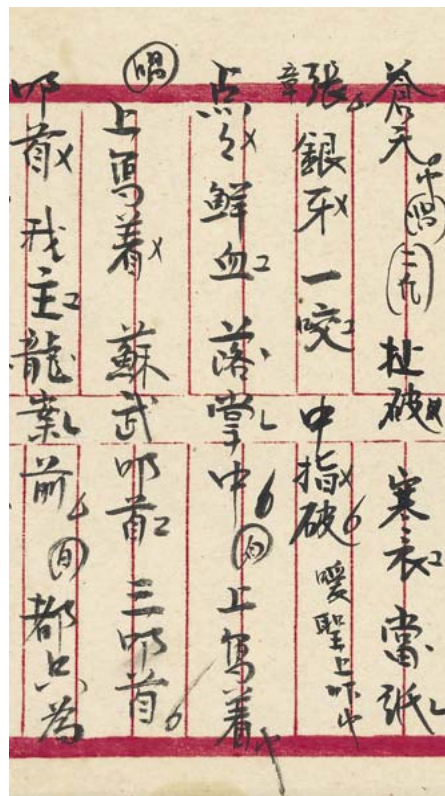 蒼天中(唱)(二流)扯破寒衣當紙
張銀牙一咬中指破嗳聖上吓中
点々鮮血落掌中(白)上写着
(唱)上写着蘇武叩首三叩首
叩首我主龍案前(白)都只為